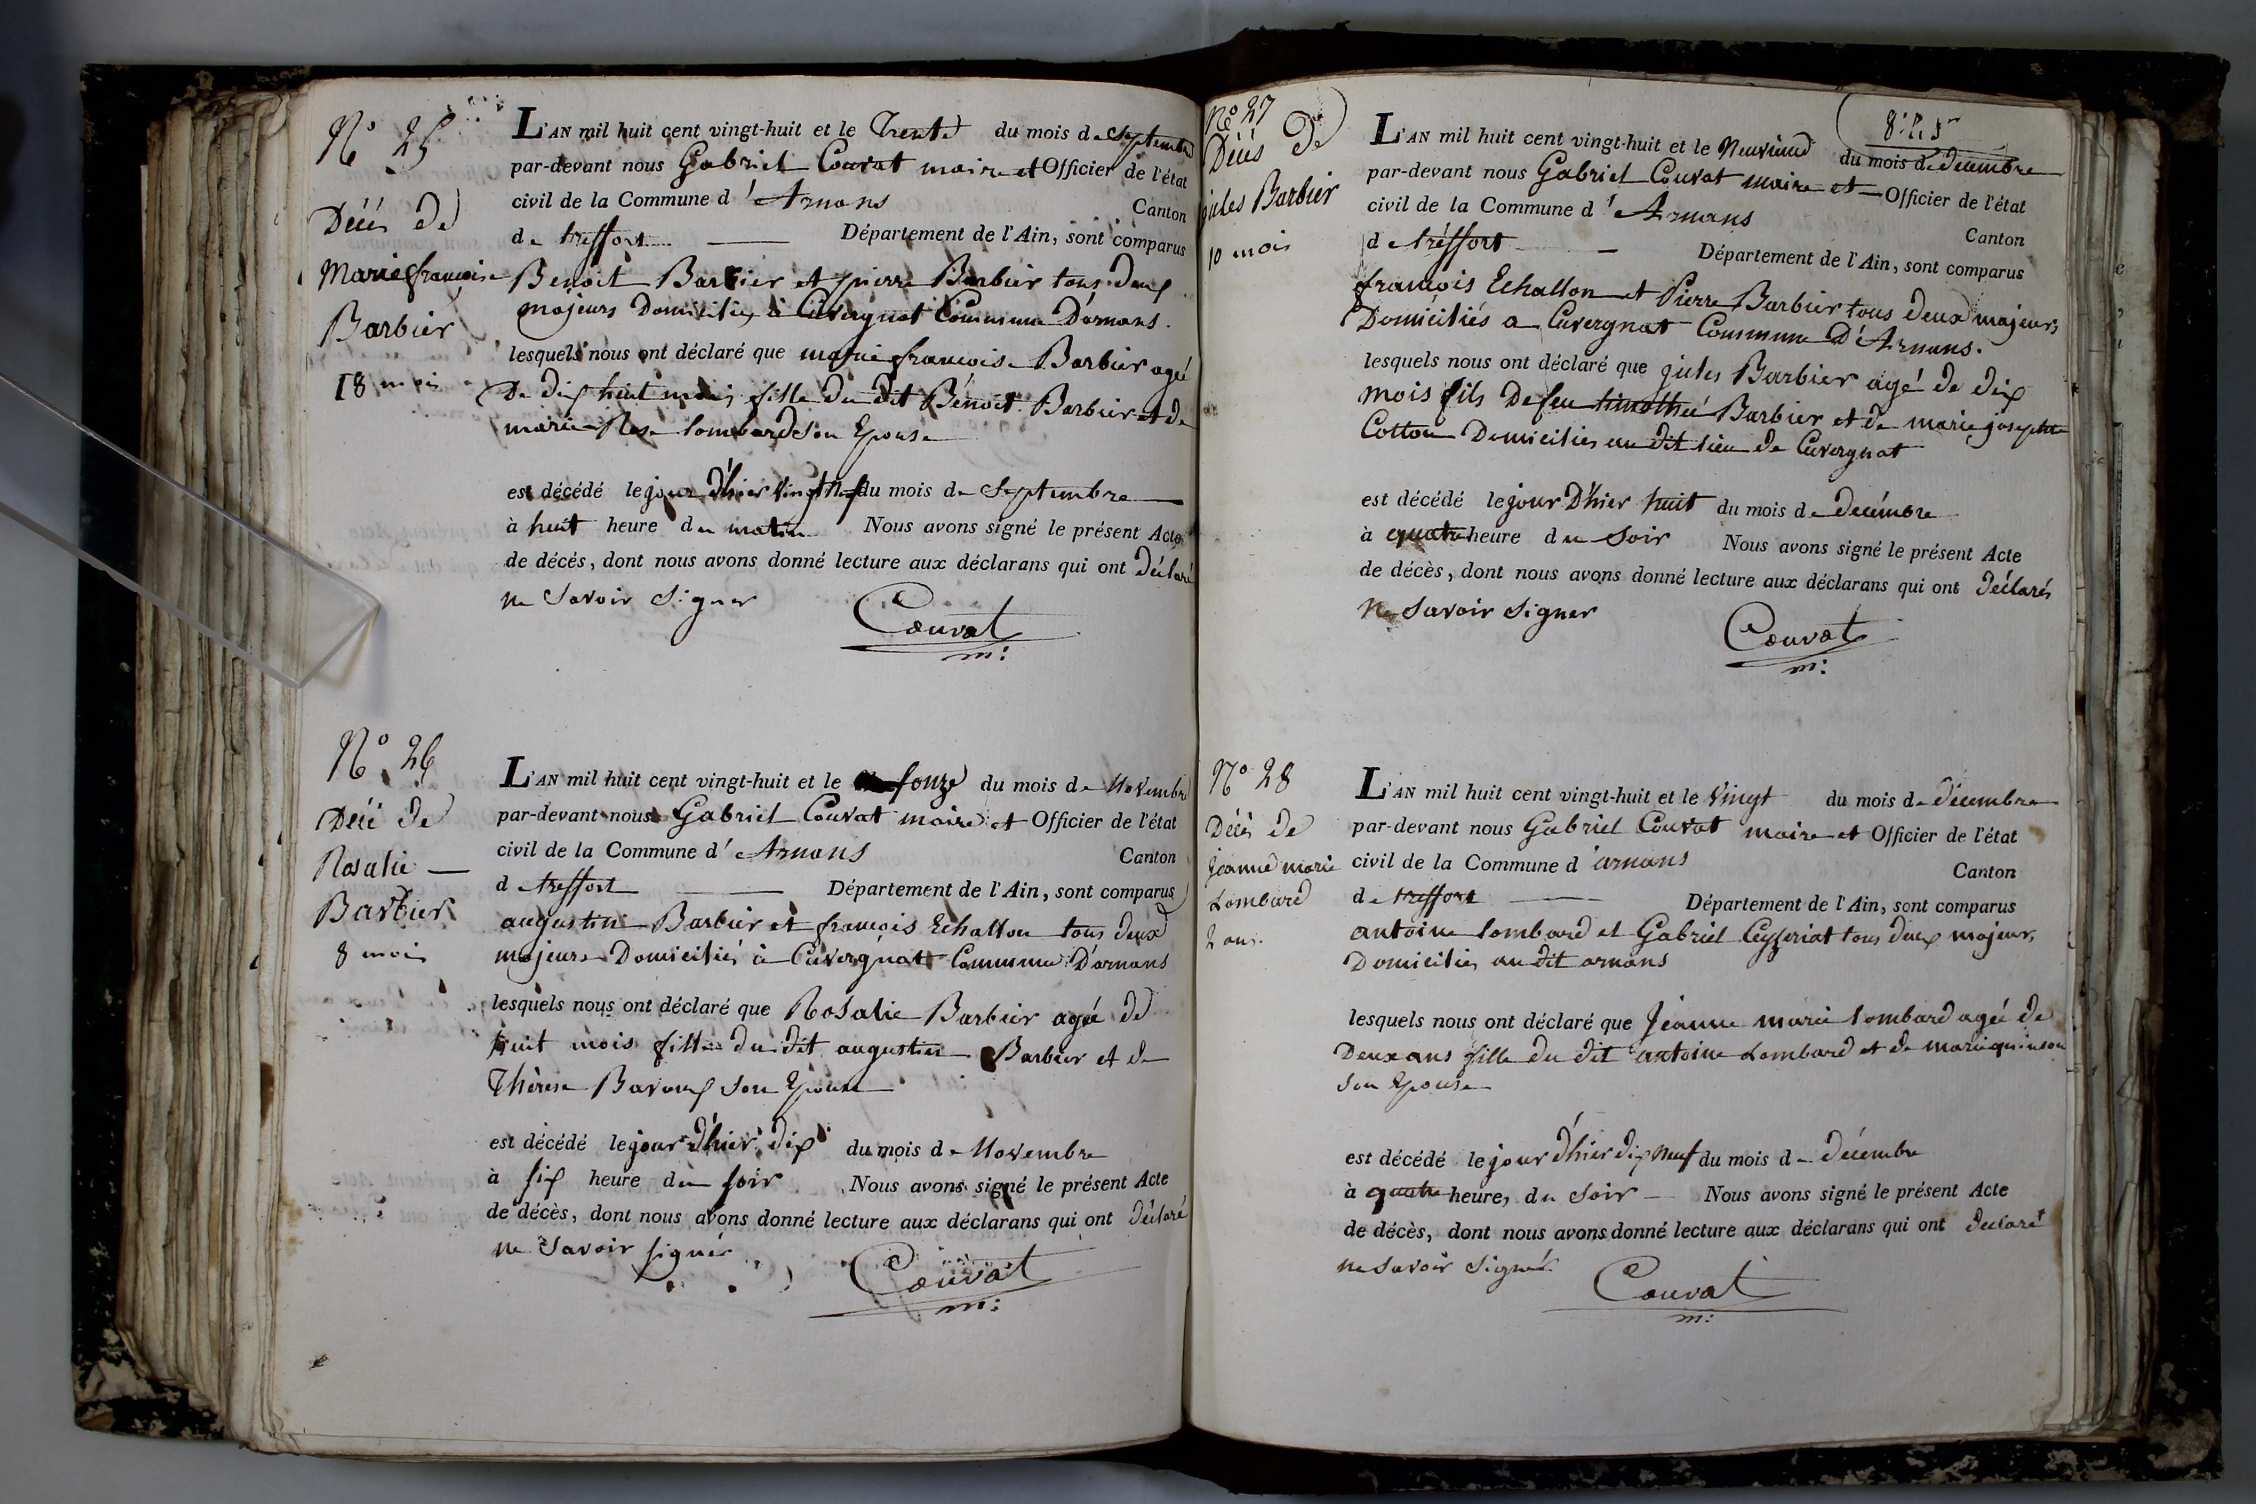 N° 25
Décés de
Marie françoise
Barbier
18 mois
L'AN mil huit cent vingt-huit et le Trente du mois de Septembre
par-devant nous Gabriel Couvat maire et Officier de l'état
civil de la Commune d'Arnans Canton
de treffort Département de l'Ain, sont comparus
Benoit Barbier et pierre Barbier tous deux
majeurs Domiciliés à Cuvergnat Commune D'arnans.
lesquels nous ont déclaré que marie françoise Barbier agé
De dix huit mois fille du dit Bénoit Barbier et de
marie Rose lombard son Epouse
est décédé le jour d'hier vingt Neuf du mois de Septembre
à huit heure du matin Nous avons signé le présent Acte
de décés, dont nous avons donné lecture aux déclarans qui ont déclaré
ne Savoir Signer
Couvat
m:
N° 26
Décé de
Rosalie
Barbier
8 mois
L'AN mil huit cent vingt-huit et le onze du mois de Novembre
par-devant nous Gabriel Couvat maire et Officier de l'état
civil de la Commune d'Arnans Canton
de treffort Département de l'Ain, sont comparus
augustin Barbier et françois Echallon tous deux
majeurs Domiciliés à Cuvergnat Commune D'arnans
lesquels nous ont déclaré que Rosalie Barbier agée de
huit mois fille du dit augustin Barbier et de
Thérese Bavoux son Epouse
est décédé le jour d'hier dix du mois de Novembre
à six heure du soir Nous avons signé le présent Acte
de décès, dont nous avons donné lecture aux déclarans qui ont déclaré
ne Savoir signér
Couvat
m:
N° 27
Décés De
jules Barbier
10 mois
L'AN mil huit cent vingt-huit et le Neuvieme du mois de décembre
par-devant nous Gabriel Couvat maire et Officier de l'état
civil de la Commune d'Arnans
Canton
de tréffort Département de l'Ain, sont comparus
françois Echallon et Pierre Barbier tous deux majeurs
Domiciliés a Cuvergnat Commune D'Arnans.
lesquels nous ont déclaré que jules Barbier agé de dix
mois fils De feu timothée Barbier et de marie josephte
Cotton Domiciliés au dit lieu de Cuvergnat
est décédé le jour D'hier huit du mois de decémbre
à quatre heure du Soir Nous avons signé le présent Acte
de décès, dont nous avons donné lecture aux déclarans qui ont déclarés
Ne Savoir Signer
Couvat
m:
N° 28
Décès de
jeanne marie
Lombard
2 ans.
L'AN mil huit cent vingt-huit et le vingt du mois de décembre
par-devant nous Gabriel Couvat maire et Officier de l'état
civil de la Commune d'arnans
Canton
de treffort Département de l'Ain, sont comparus
antoine lombard et Gabriel Ceyzeriat tous deux majeurs
Domiciliés au dit arnans
lesquels nous ont déclaré que Jeanne marie lombard agée de
Deux ans fille du dit antoine Lombard et de marie quinson
son Epouse
est décédé le jour d'hier dix Neuf du mois de décembre
à quatre heure, du Soir Nous avons signé le présent Acte
de décès, dont nous avons donné lecture aux déclarans qui ont declaré
ne Savoir Signér
Couvat
m: